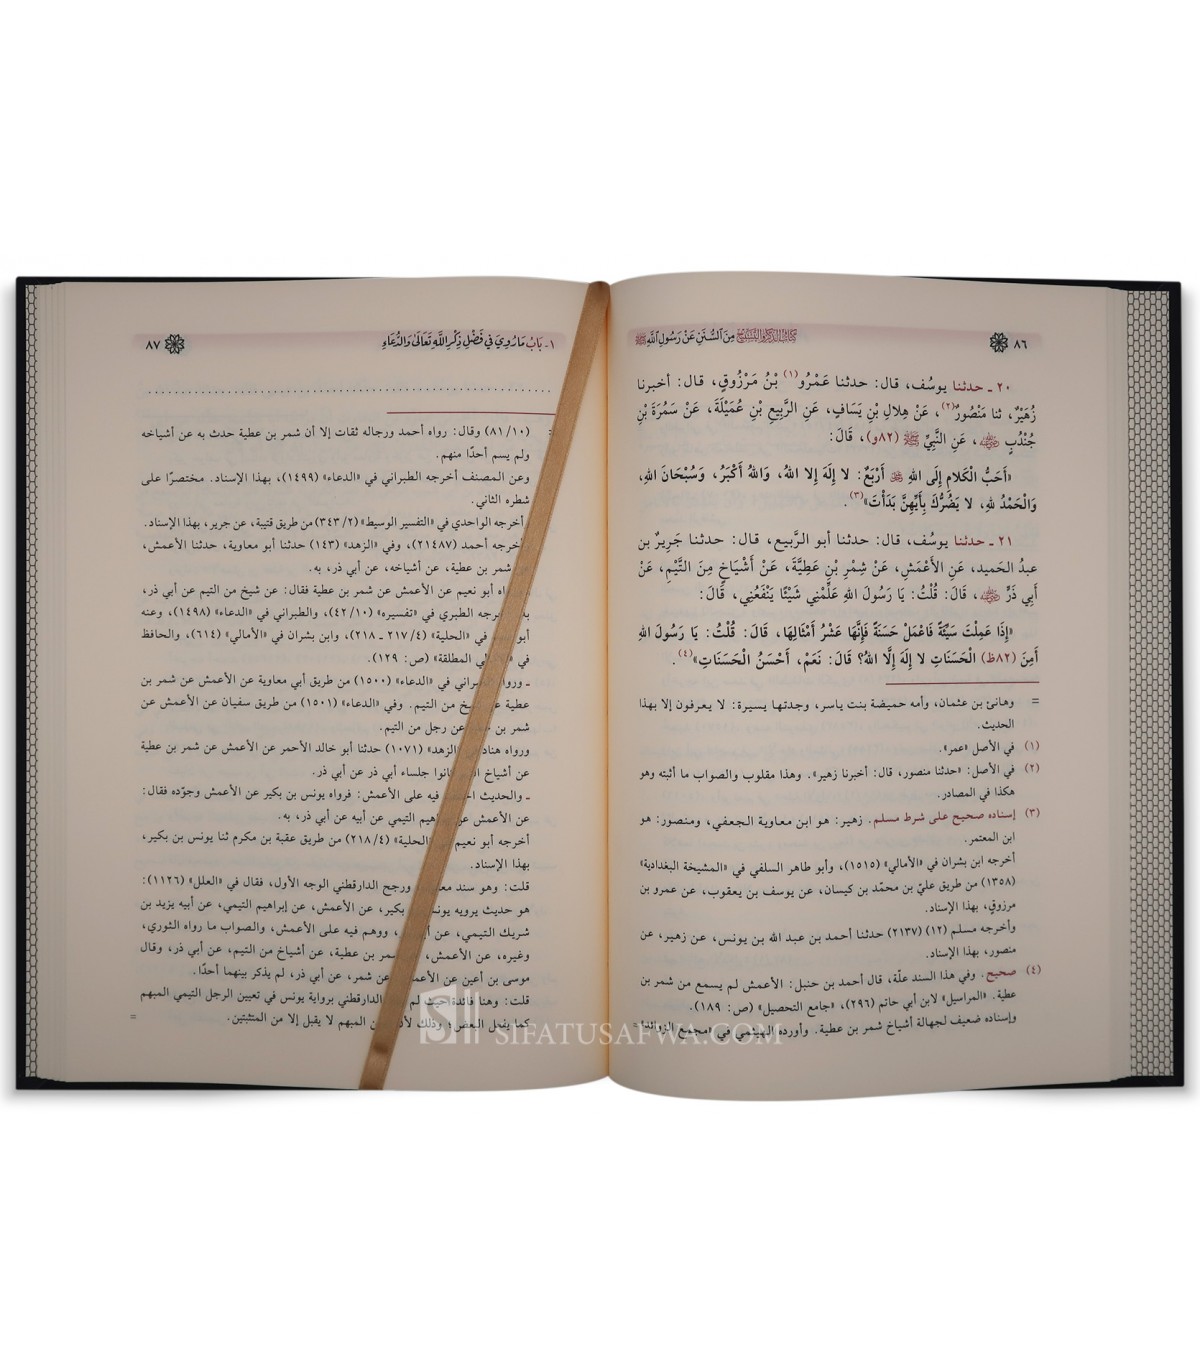 ٨٦ كتاب الذكر والتسبيح مِنَ السُّنَنِ عَنْ رَسُولِ اللَّهِ ﷺ
٢٠ ـ حدثنا يوسُف، قال: حدثنا عَمْرُو(١) بْنُ مَرْزُوقٍ، قال: أخبرنا
زُهَيْرٌ، ثنا مَنْصُورٌ(٢)، عَنْ هِلالِ بْنِ يَسَافٍ، عَنِ الرَّبِيعِ بْنِ عُمَيْلَةَ، عَنْ سَمُرَةَ بْنِ
جُنْدُبٍ ﷺ، عَنِ النَّبِيِّ ﷺ (٨٢و)، قَالَ:
«أَحَبُّ الْكَلامِ إِلَى اللهِ ﷻ أَرْبَعٌ: لا إِلَهَ إِلا اللهُ، وَاللهُ أَكْبَرُ، وَسُبْحَانَ اللهِ،
وَالْحَمْدُ للهِ، لا يَضُرُّكَ بِأَيِّهِنَّ بَدَأْتَ»(٣).
٢١ ـ حدثنا يوسُف، قال: حدثنا أبو الرَّبيع، قال: حدثنا جَرِيرُ بن
عبدُ الحَميد، عَنِ الأَعْمَشِ، عَنْ شِمْرِ بْنِ عَطِيَّةَ، عَنْ أَشْيَاخٍ مِنَ التَّيْمِ، عَنْ
أَبِي ذَرٍّ ﷺ، قَالَ: قُلْتُ: يَا رَسُولَ اللهِ عَلِّمْنِي شَيْئًا يَنْفَعُنِي، قَالَ:
«إِذَا عَمِلْتَ سَيِّئَةً فَاعْمَلْ حَسَنَةً فَإِنَّهَا عَشْرُ أَمْثَالِهَا، قَالَ: قُلْتُ: يَا رَسُولَ اللهِ
أَمِنَ (٨٢ظ) الْحَسَنَاتِ لا إِلَهَ إِلَّا اللهُ؟ قَالَ: نَعَمْ، أَحْسَنُ الْحَسَنَاتِ»(٤).
= وهانئ بن عثمان، وأمه حميضة بنت ياسر، وجدتها يسيرة: لا يعرفون إلا بهذا
الحديث.
(١) في الأصل «عمر».
(٢) في الأصل: «حدثنا منصور، قال: أخبرنا زهير». وهذا مقلوب والصواب ما أثبته وهو
هكذا في المصادر.
(٣) إسناده صحيح على شرط مسلم. زهير: هو ابن معاوية الجعفي، ومنصور: هو
ابن المعتمر.
أخرجه ابن بشران في «الأمالي» (١٥١٥)، وأبو طاهر السلفي في «المشيخة البغدادية»
(١٣٥٨) من طريق عليّ بن محمّد بن كيسان، عن يوسف بن يعقوب، عن عمرو بن
مرزوق، بهذا الإسناد.
وأخرجه مسلم (١٢) (٢١٣٧) حدثنا أحمد بن عبد الله بن يونس، عن زهير، عن
منصور، بهذا الإسناد.
(٤) صحيح. وفي هذا السند علّة، قال أحمد بن حنبل: الأعمش لم يسمع من شمر بن
عطية. «المراسيل» لابن أبي حاتم (٢٩٦)، «جامع التحصيل» (ص: ١٨٩).
وإسناده ضعيف لجهالة أشياخ شمر بن عطية. وأورده الهيثمي في «مجمع الزوائد» =
١ ـ بَابُ مَا رُوِيَ فِي فَضْلِ ذِكْرِ اللَّهِ تَعَالَى وَالدُّعَاءِ ٨٧
= (٨١/١٠) وقال: رواه أحمد ورجاله ثقات إلا أن شمر بن عطية حدث به عن أشياخه
ولم يسم أحدًا منهم.
وعن المصنف أخرجه الطبراني في «الدعاء» (١٤٩٩)، بهذا الإسناد. مختصرًا على
شطره الثاني.
أخرجه الواحدي في «التفسير الوسيط» (٣٤٣/٢) من طريق قتيبة، عن جرير، بهذا الإسناد.
أخرجه أحمد (٢١٤٨٧)، وفي «الزهد» (١٤٣) حدثنا أبو معاوية، حدثنا الأعمش،
شمر بن عطية، عن أشياخه، عن أبي ذر، به.
أبو نعيم عن الأعمش عن شمر بن عطية فقال: عن شيخ من التيم عن أبي ذر،
الطبري في «تفسيره» (٤٢/١٠)، والطبراني في «الدعاء» (١٤٩٨)، وعنه
في «الحلية» (٢١٧/٤ ـ ٢١٨)، وابن بشران في «الأمالي» (٦١٤)، والحافظ
في المطلقة» (ص: ١٢٩).
ـ في «الدعاء» (١٥٠٠) من طريق أبي معاوية عن الأعمش عن شمر بن
عطية من التيم. وفي «الدعاء» (١٥٠١) من طريق سفيان عن الأعمش عن
شمر بن عن رجل من التيم.
ورواه هناد «الزهد» (١٠٧١) حدثنا أبو خالد الأحمر عن الأعمش عن شمر بن عطية
عن أشياخ جلساء أبي ذر عن أبي ذر.
ـ والحديث فيه على الأعمش: فرواه يونس بن بكير عن الأعمش وجوّده فقال:
عن الأعمش عن التيمي عن أبيه عن أبي ذر، به.
أخرجه أبو نعيم «الحلية» (٢١٨/٤) من طريق عقبة بن مكرم ثنا يونس بن بكير،
بهذا الإسناد.
قلت: وهو سند ورجح الدارقطني الوجه الأول، فقال في «العلل» (١١٢٦):
هو حديث يرويه يونس بكير، عن الأعمش، عن إبراهيم التيمي، عن أبيه يزيد بن
شريك التيمي، عن ووهم فيه على الأعمش، والصواب ما رواه الثوري،
وغيره، عن الأعمش، شمر بن عطية، عن أشياخ من التيم، عن أبي ذر، وقال
موسى بن أعين عن الأعمش عن شمر، عن أبي ذر، لم يذكر بينهما أحدًا.
قلت: وهنا فائدة حيث لم الدارقطني برواية يونس في تعيين الرجل التيمي المبهم
كما يفعل البعض؛ وذلك المبهم لا يقبل إلا من المتثبتين. =
SIFATUSAFWA.COM